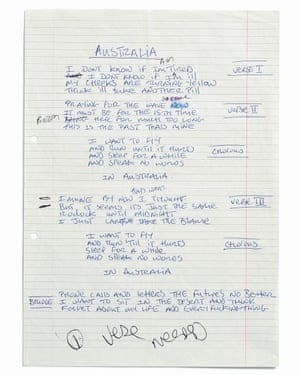 AUSTRALIA
I DON'T KNOW IF I'M TIRED
AM
VERSE I
I DON'T KNOW IF I'M ILL
MY CHEEKS ARE TURNING YELLOW
THINK I'LL TAKE ANOTHER PILL
PRAYING FOR THE WAVE NOW
VERSE II
IT MUST BE FOR THE 15TH TIME
BEEN
HERE FOR MUCH TOO LONG
THIS IS THE PAST THAT'S MINE
I WANT TO FLY
AND RUN UNTIL IT HURTS
CHORUS
AND SLEEP FOR A WHILE
AND SPEAK NO WORDS
IN AUSTRALIA.
BY NOW I THOUGHT
VERSE III
BUT IT SEEMS ITS JUST THE SAME
UNTIL MIDNIGHT
I JUST TAKE THE BLAME
I WANT TO FLY
AND RUN 'TILL IT HURTS
CHORUS
SLEEP FOR A WHILE
AND SPEAK NO WORDS
IN AUSTRALIA
BRIDGE
PHONE CALLS AND LETTERS THE FUTURE'S NO BETTER
I WANT TO SIT IN THE DESERT AND THINK
FORGET ABOUT MY LIFE AND EVERYFUCKINGTHING
1